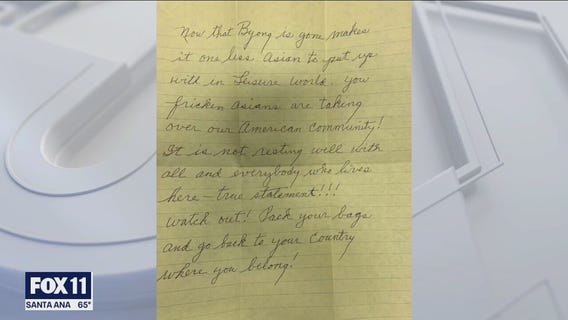 Now that Byong is gone makes
it one less Asian to put up
with in Leisure World. You
fricken Asians are taking
over our American community!
It is not resting will with
all and everybody who lives
here - true statement!!!
Watch out! Pack your bags
and go back to your Country
where you belong!
FOX 11
SANTA ANA 65°